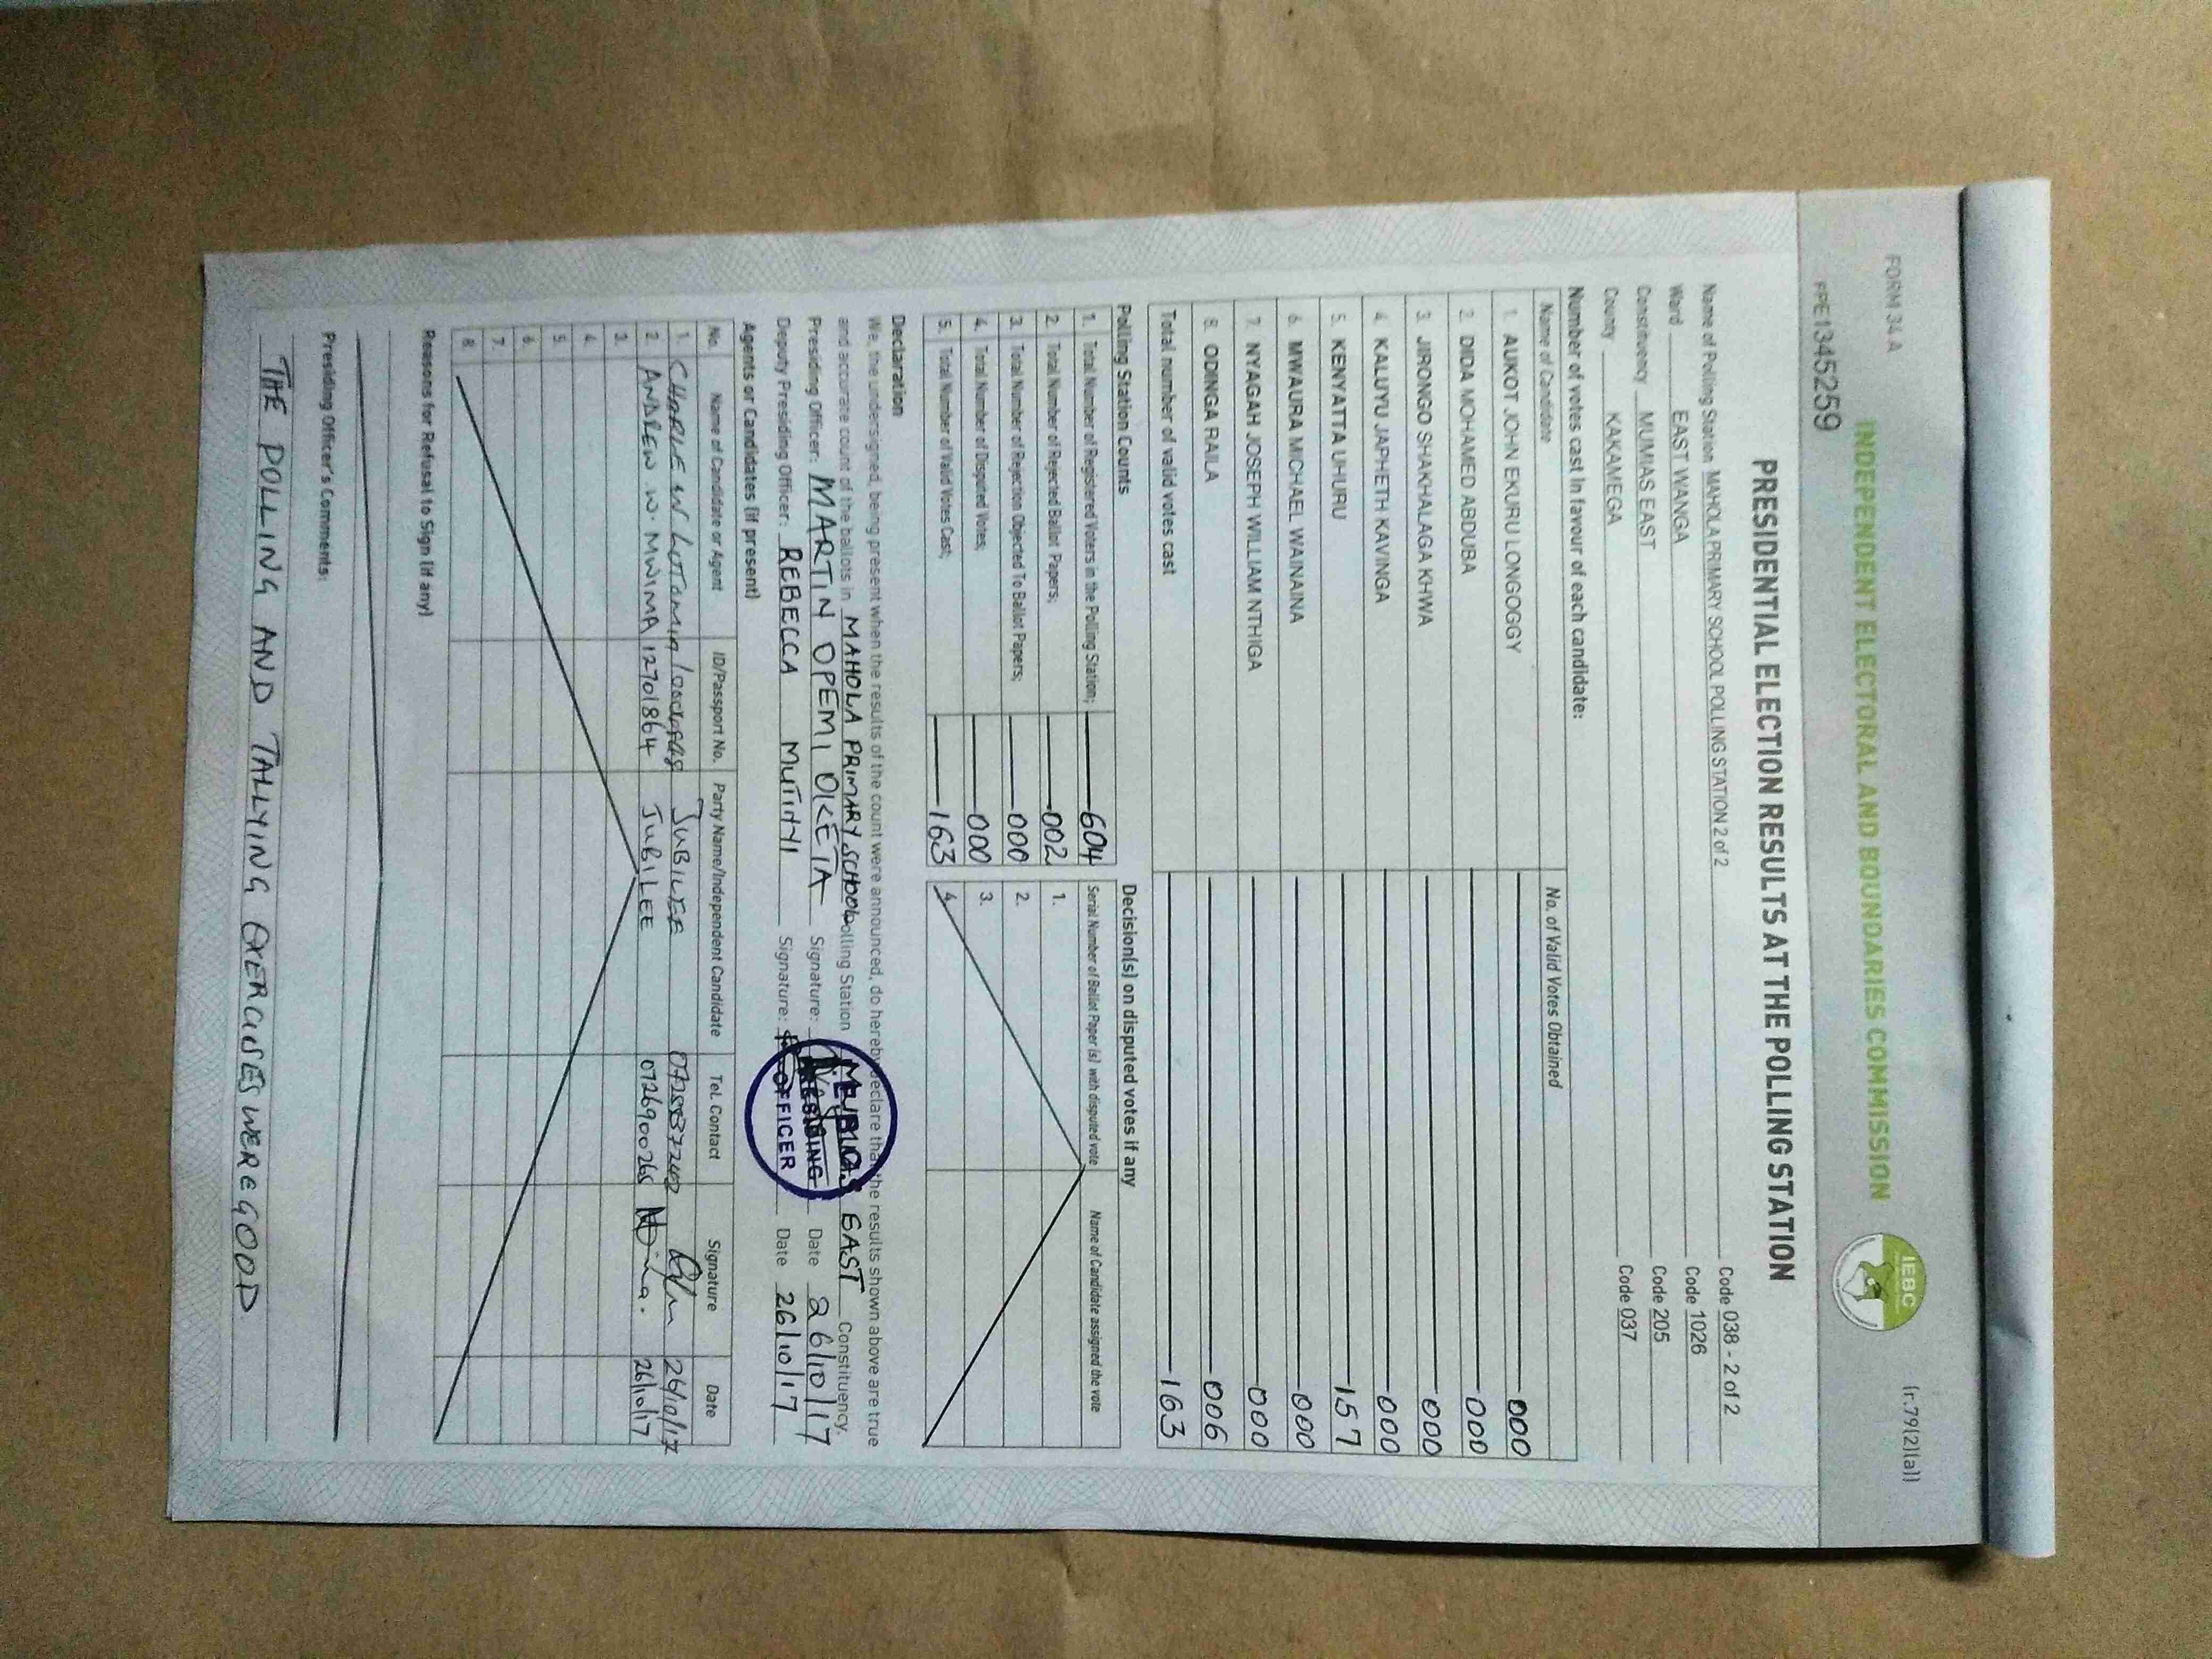 FORM 34 A
(r.79(2)(a))
INDEPENDENT ELECTORAL AND BOUNDARIES COMMISSION
IEBC
FPE1345259
PRESIDENTIAL ELECTION RESULTS AT THE POLLING STATION
Name of Polling Station MAHOLA PRIMARY SCHOOL POLLING STATION 2 of 2 Code 038 - 2 of 2
Ward EAST WANGA Code 1026
Constituency MUMIAS EAST Code 205
County KAKAMEGA Code 037
Number of votes cast in favour of each candidate:
Name of Candidate No. of Valid Votes Obtained
1. AUKOT JOHN EKURU LONGOGGY 000
2. DIDA MOHAMED ABDUBA 000
3. JIRONGO SHAKHALAGA KHWA 000
4. KALUYU JAPHETH KAVINGA 000
5. KENYATTA UHURU 157
6. MWAURA MICHAEL WAINAINA 000
7. NYAGAH JOSEPH WILLIAM NTHIGA 000
8. ODINGA RAILA 006
Total number of valid votes cast 163
Polling Station Counts Decision(s) on disputed votes if any
1. Total Number of Registered Voters in the Polling Station; 604 Serial Number of Ballot Paper (s) with disputed vote Name of Candidate assigned the vote
2. Total Number of Rejected Ballot Papers; 002 1.
3. Total Number of Rejection Objected To Ballot Papers; 000 2.
4. Total Number of Disputed Votes; 000 3.
5. Total Number of Valid Votes Cast; 163 4.
Declaration
We, the undersigned, being present when the results of the count were announced, do hereby declare that the results shown above are true
and accurate count of the ballots in MAHOLA PRIMARY SCHOOL Polling Station MUMIAS EAST Constituency.
Presiding Officer: MARTIN OPEMI OKETA Signature: Date 26/10/17
Deputy Presiding Officer: REBECCA MUTINYI Signature: Date 26/10/17
PRESIDING
OFFICER
Agents or Candidates (if present)
No. Name of Candidate or Agent ID/Passport No. Party Name/Independent Candidate Tel. Contact Signature Date
1. JUBILEE 26/10/17
2. ANDREW W. MWIMA 12701864 JUBILEE 0726900265 26/10/17
3.
4.
5.
6.
7.
8.
Reasons for Refusal to Sign (if any)
Presiding Officer's Comments:
THE POLLING AND TALLYING EXERCISES WERE GOOD.